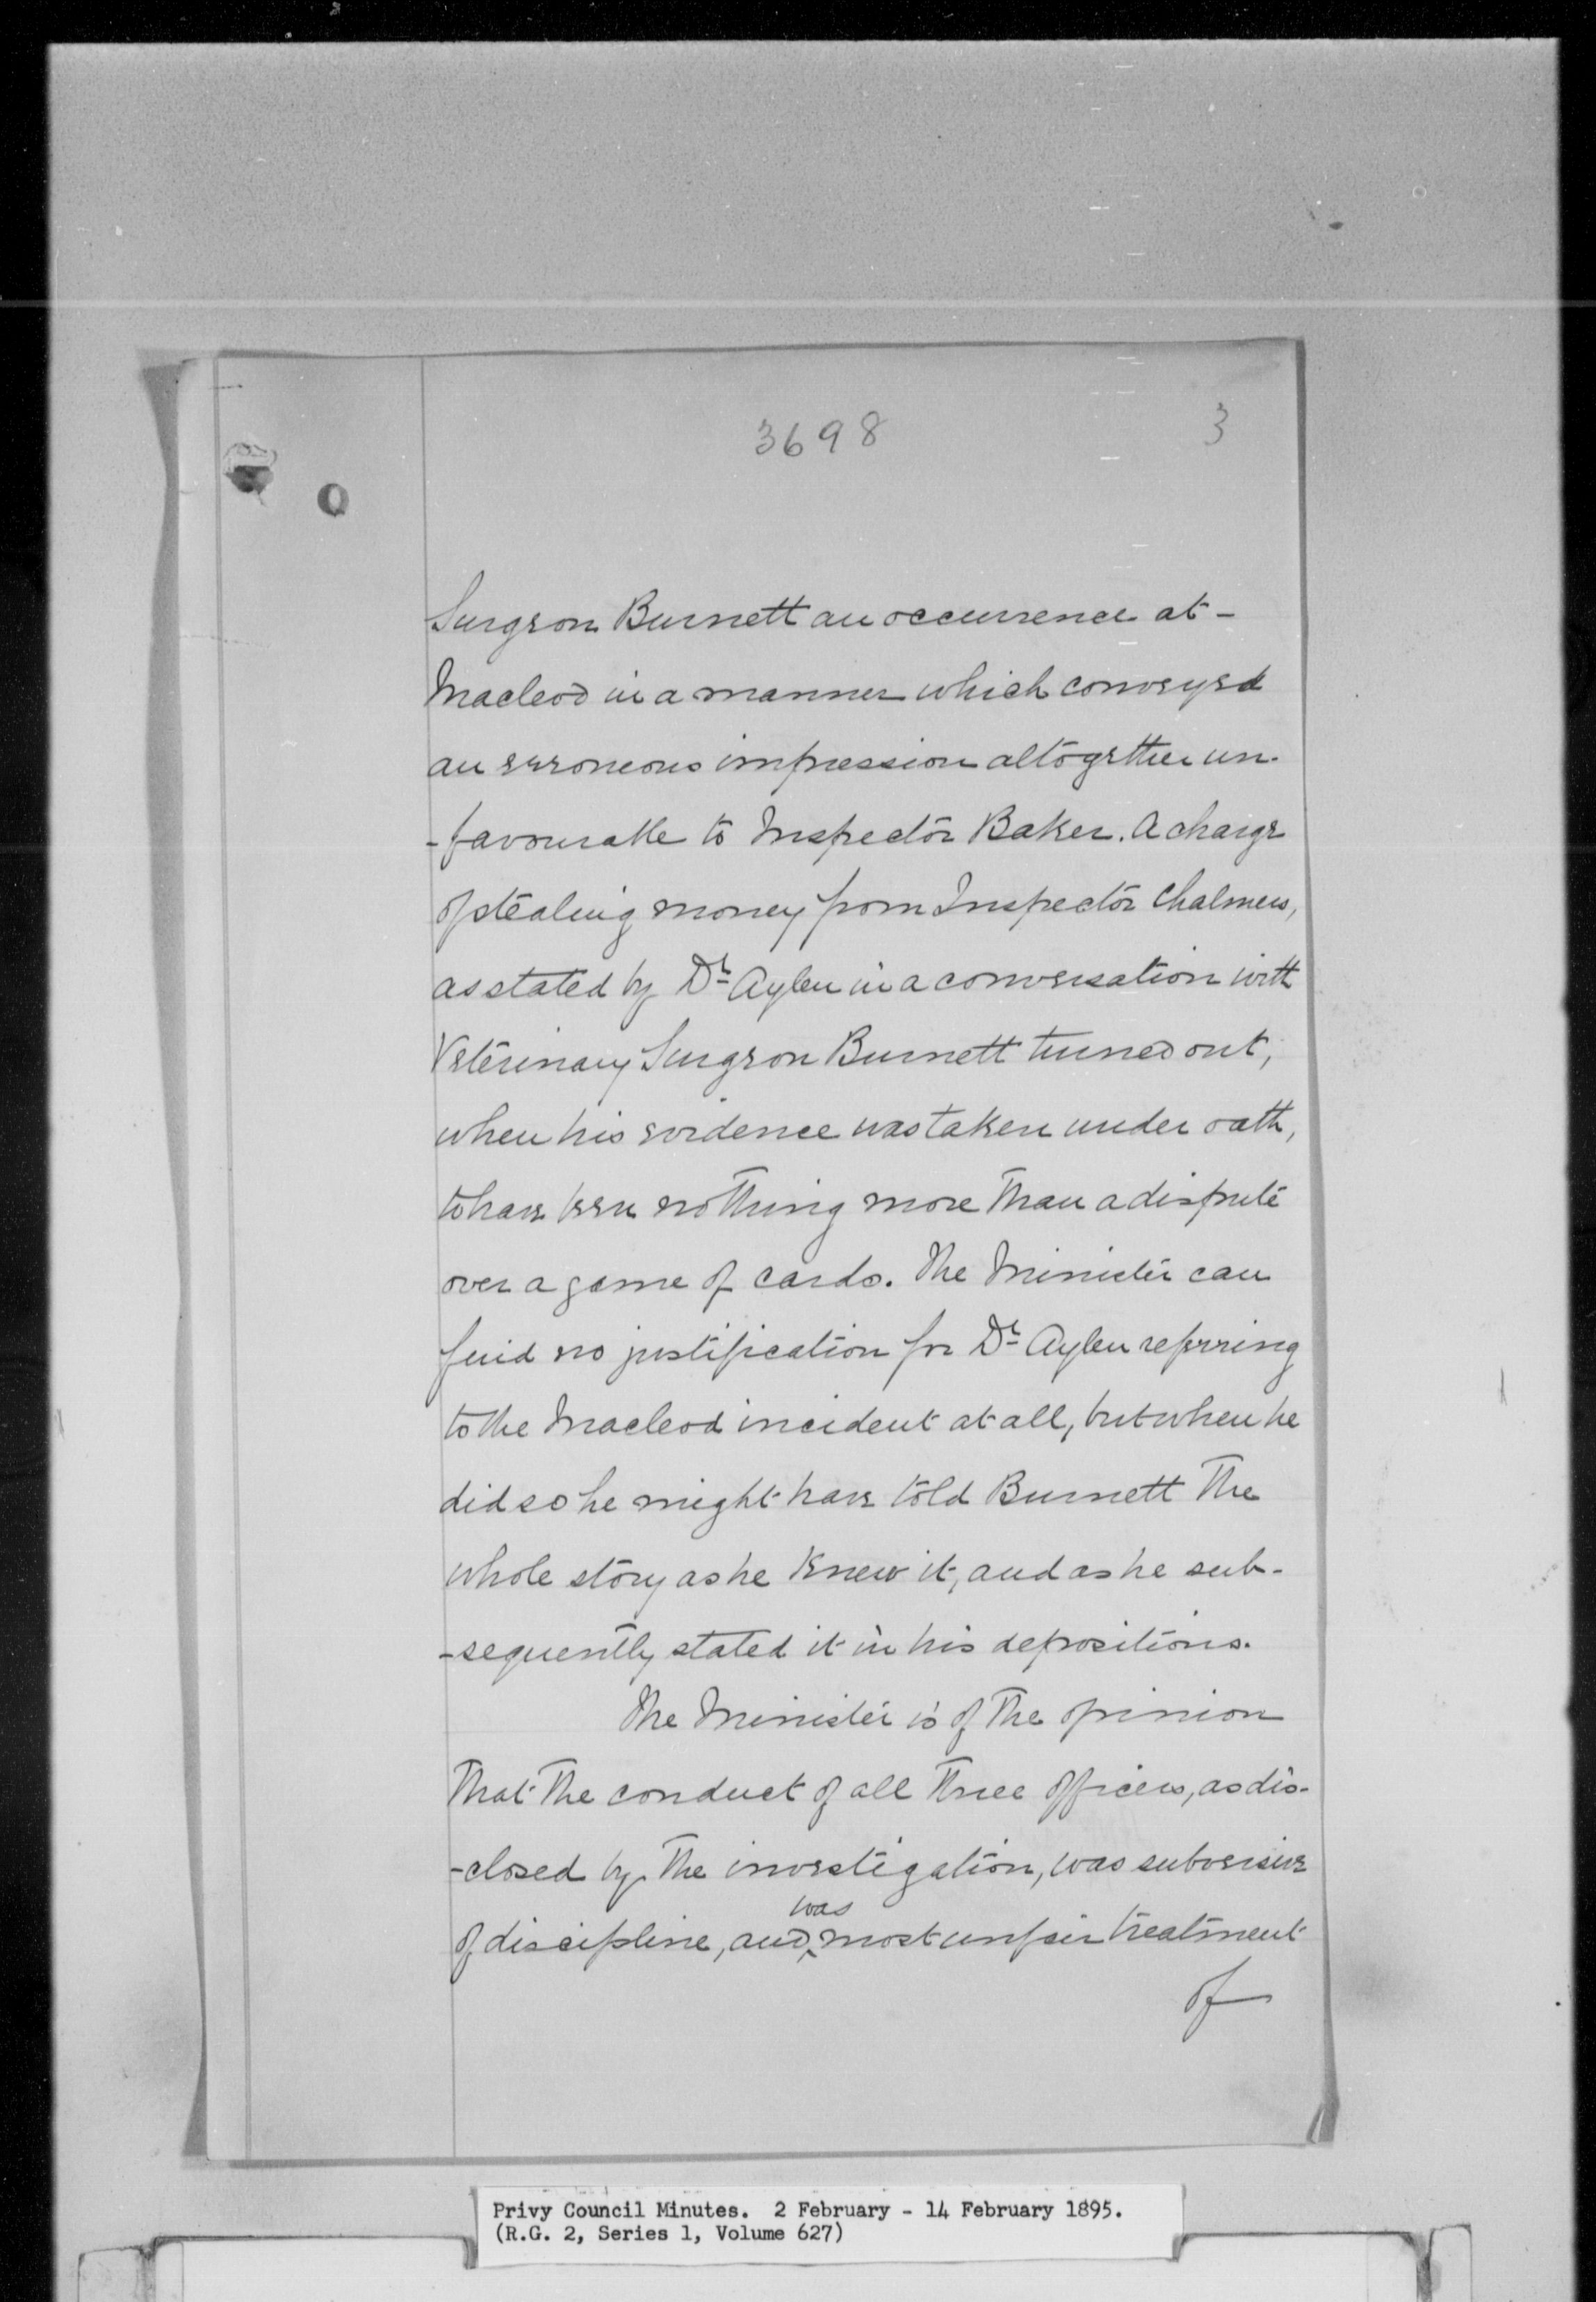 3698
3
Surgeon Burnett an occurrence at-
Macleod in a manner which conveyed
an erroneous impression altogether un-
-favourable to Inspector Baker. A charge
of stealing money from Inspector Chalmers,
as stated by Dr Aylen in a conversation with
Veterinary Surgeon Burnett turned out,
when his evidence was taken under oath,
to have been nothing more than a dispute
over a game of cards. The Minister can
find no justification for Dr Aylen referring
to the Macleod incident at all, but when he
did so he might have told Burnett the
whole story as he knew it, and as he sub-
-sequently stated it in his depositions.
The Minister is of the opinion
that the conduct of all three officers, as dis-
-closed by the investigation, was subversive
was
of discipline, and most unfair treatment
of
Privy Council Minutes. 2 February - 14 February 1895.
(R.G. 2, Series 1, Volume 627)